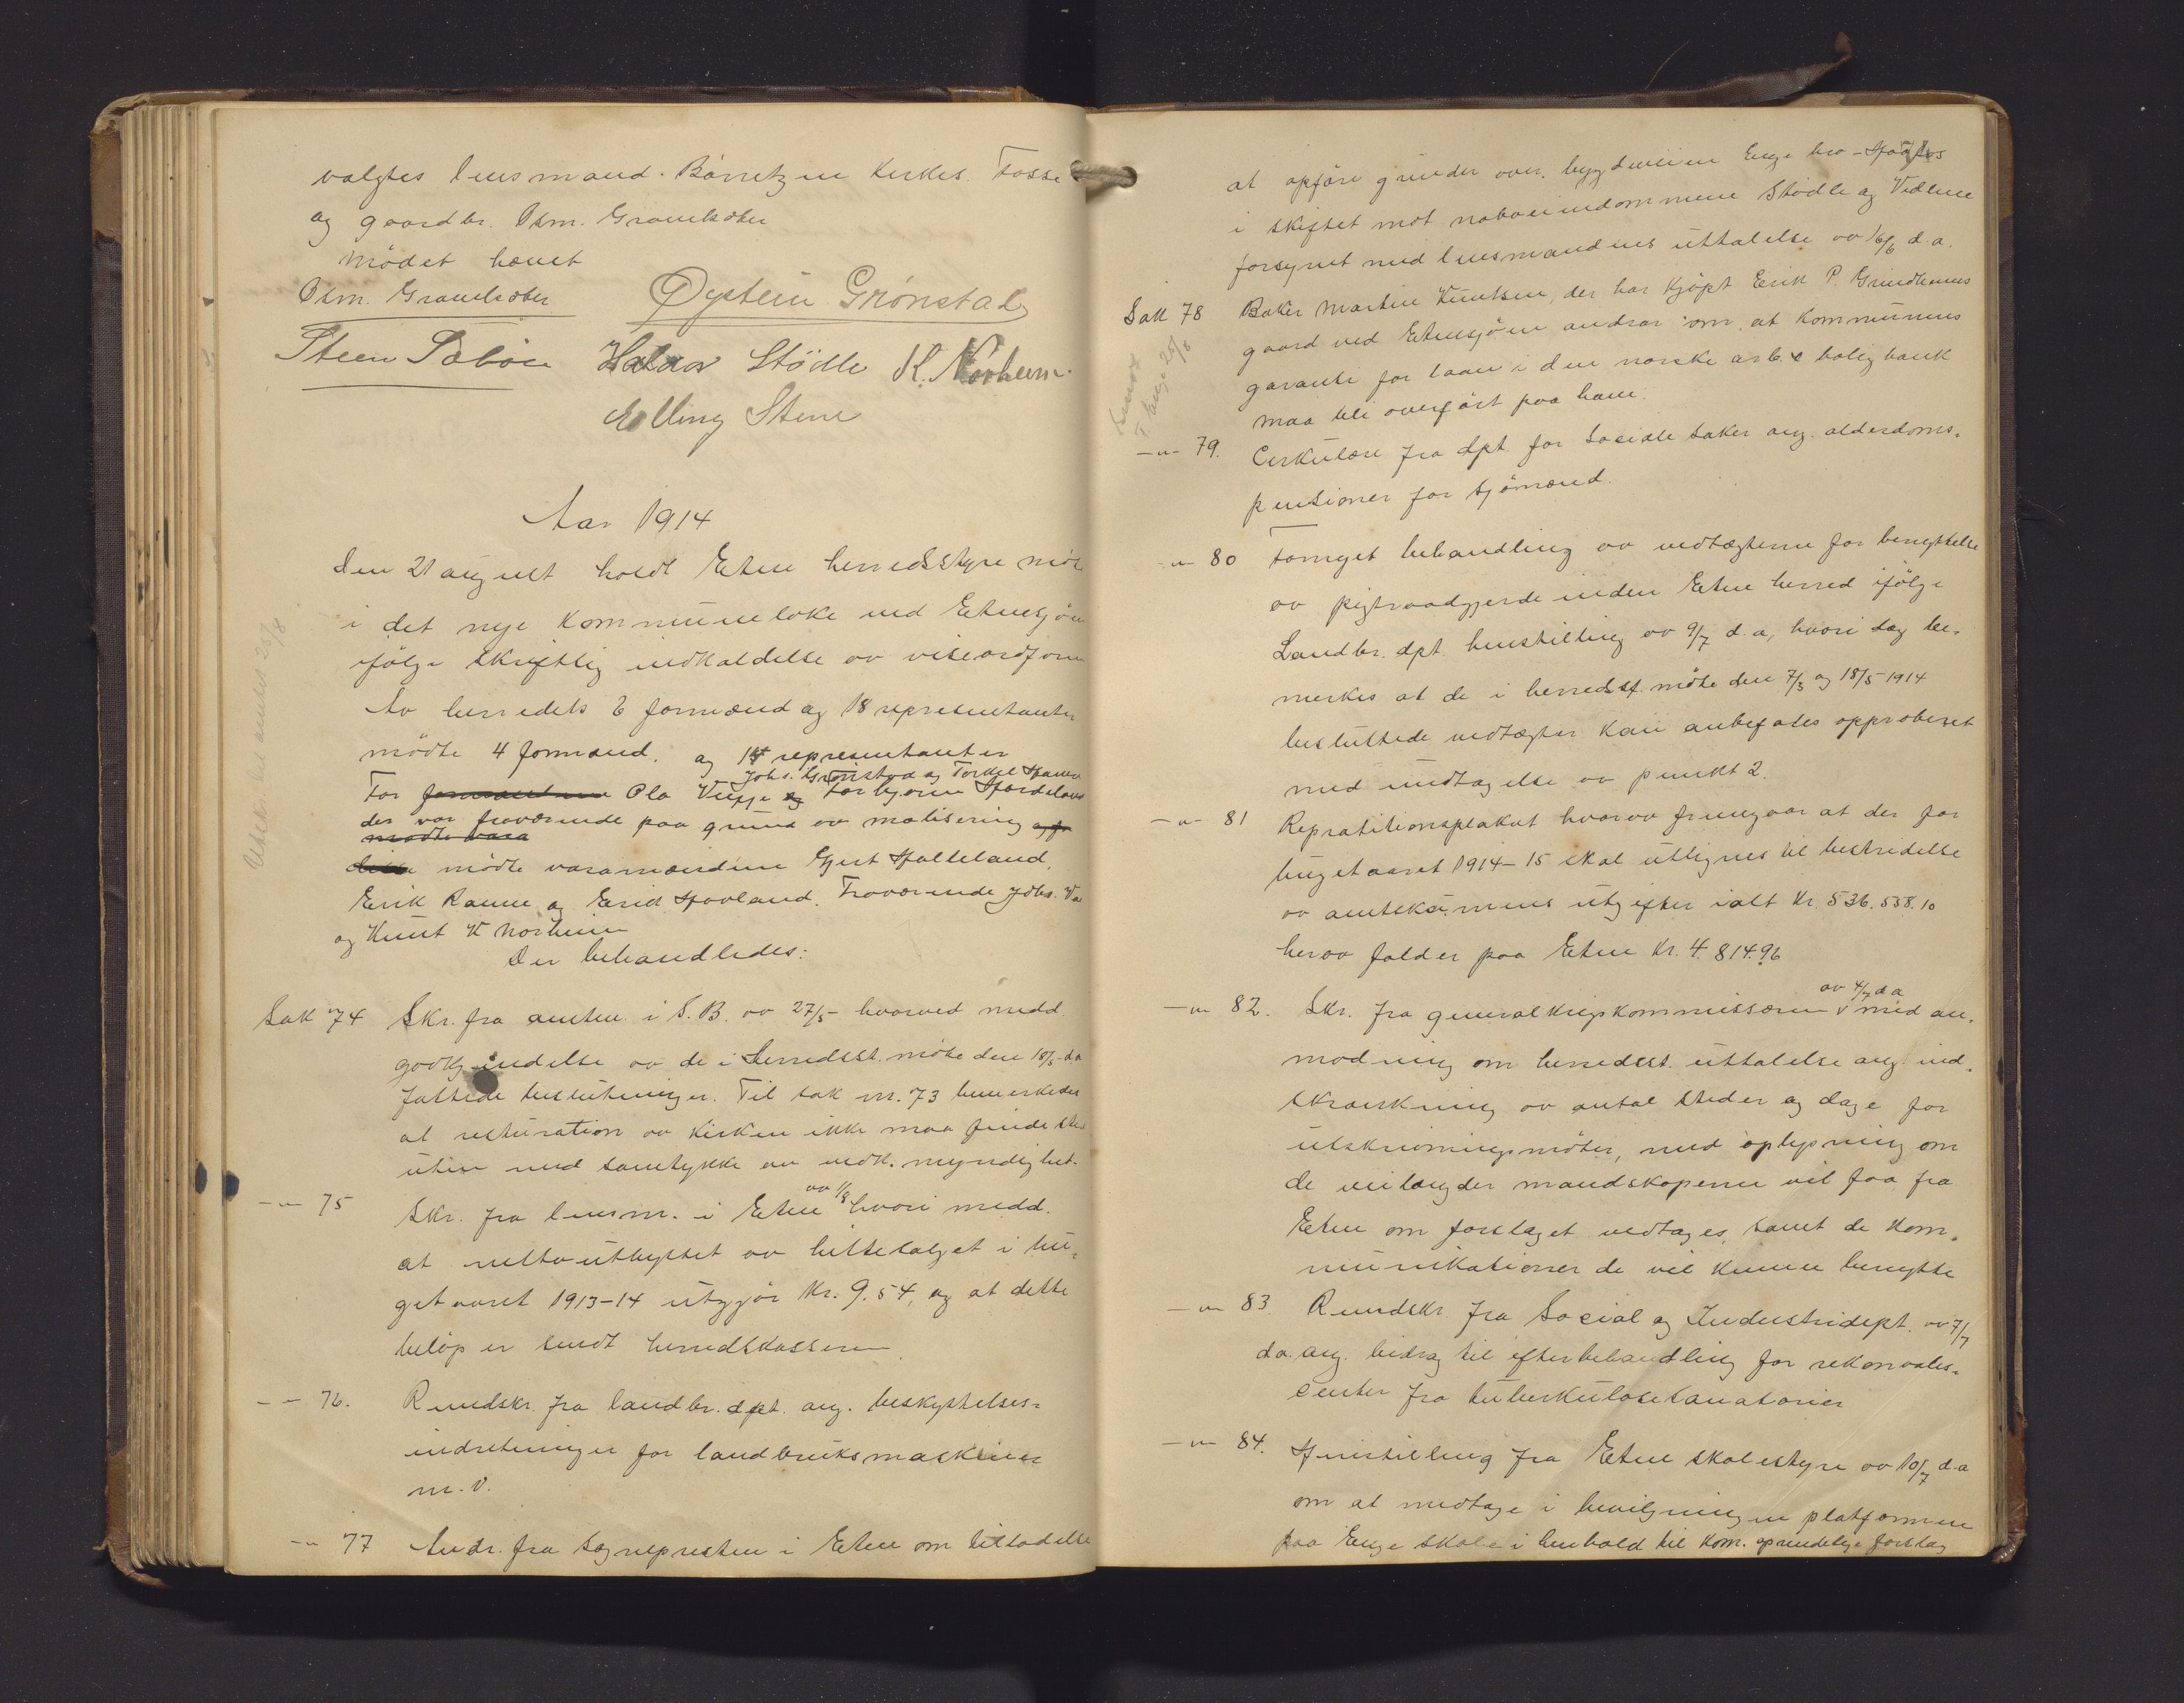 valgtes lensmand Børretzen kirkes. Fosse
og gaardbr. Osm. Gravelsæter
Mødet hævet
Osm. Gravelsæter Øystein Grønstad
Steen Sæbøe Halvor Stödle K. Norheim
Elling Stene
Aar 1914
Den 21 august holdt Etne herredsstyre møte
i det nye kommunelokale ved Etnesjøen
ifølge skriftlig indkaldelse av viseordfører
Av herredets 6 formænd og 18 representanter
mødte 4 formænd. og 14 representanter
Johs. Grønstad og Torkel
For Ola Vinje og Torbjørn Hardeland
der var fraværende paa grund av mobilisering
mødte varamændene Gjert Halleland,
Erik Ramne og Erik Hovland. Fraværende Johs.
og Knut K Norheim
Der behandledes:
Sak 74 Skr. fra amten i S.B. av 27/5 hvorved medd.
godkjendelse av de i herredsst. møte den 18/5 d.a
fattede beslutninger. Til sak nr. 73 bemerkedes
at resturation av kirken ikke maa finde sted
uten med samtykke av vedk. myndighet.
-"- 75 Skr. fra lensm. i Etne av 1/8 hvori medd.
at nettoutbyttet av hittesalget i bu-
getaaret 1913-14 utgjør kr. 9.54, og at dette
beløp er sendt herredskasseren
-"- 76. Rundskr. fra landbr. dept. ang. beskyttelses-
indretninger for landbruksmaskiner
m.v.
-"- 77 Andr. fra sognepresten i Etne om tilladelse
Utskr. til amtet 25/8
at opføre grinder over bygdeveien Enge bro -
i skiftet mot naboeiendommene Stødle og Vedlene
forsynet med lensmandens uttalelse av 16/6 d.a.
Sak 78 Baker Martin Knutsen, der har kjøpt Erik P. Grindheims
gaard ved Etnesjøen andrar om at kommunens
garanti for laan i den norske arb. & boligbank
maa bli overført paa ham.
-"- 79. Cirkulære fra dpt. for sociale saker ang. alderdoms-
pensioner for sjømænd.
-"- 80 Fornyet behandling av vedtægterne for benyttelse
av pigtraadgjerde inden Etne herred ifølge
Landbr. dpt. henstilling av 9/7 d.a, hvori dog be-
merkes at de i herredsst. møte den 7/3 og 18/5 1914
besluttede vedtægter kan anbefales approberet
med undtagelse av punkt 2.
-"- 81 Repratitionsplakat hvorav fremgaar at der for
bugetaaret 1914-15 skal utlignes til bestridelse
av amtskommunens utgifter ialt kr. 536.558.10
herav falder paa Etne kr. 4.814.96
-"- 82. Skr. fra generalkrigskommissæren av 4/7 d.a med an-
modning om herredsst. uttalelse ang. ind-
skrænkning av antal steder og dage for
utskrivningsmøter, med oplysning om
de veilængder mandskaperne vil faa fra
Etne om forslaget vedtages, samt de kom-
munikationer de vil kunne benytte
-"- 83. Rundskr. fra Social og Industridept. av 7/7
d.a. ang. bidrag til efterbehandling for rekonvales-
center fra tuberkulosesanatorier
-"- 84. Henstilling fra Etne skolestyre av 10/7 d.a
om at medtage i bevilgningen platformen
paa Enge skole i henhold til kom. oprindelige forslag